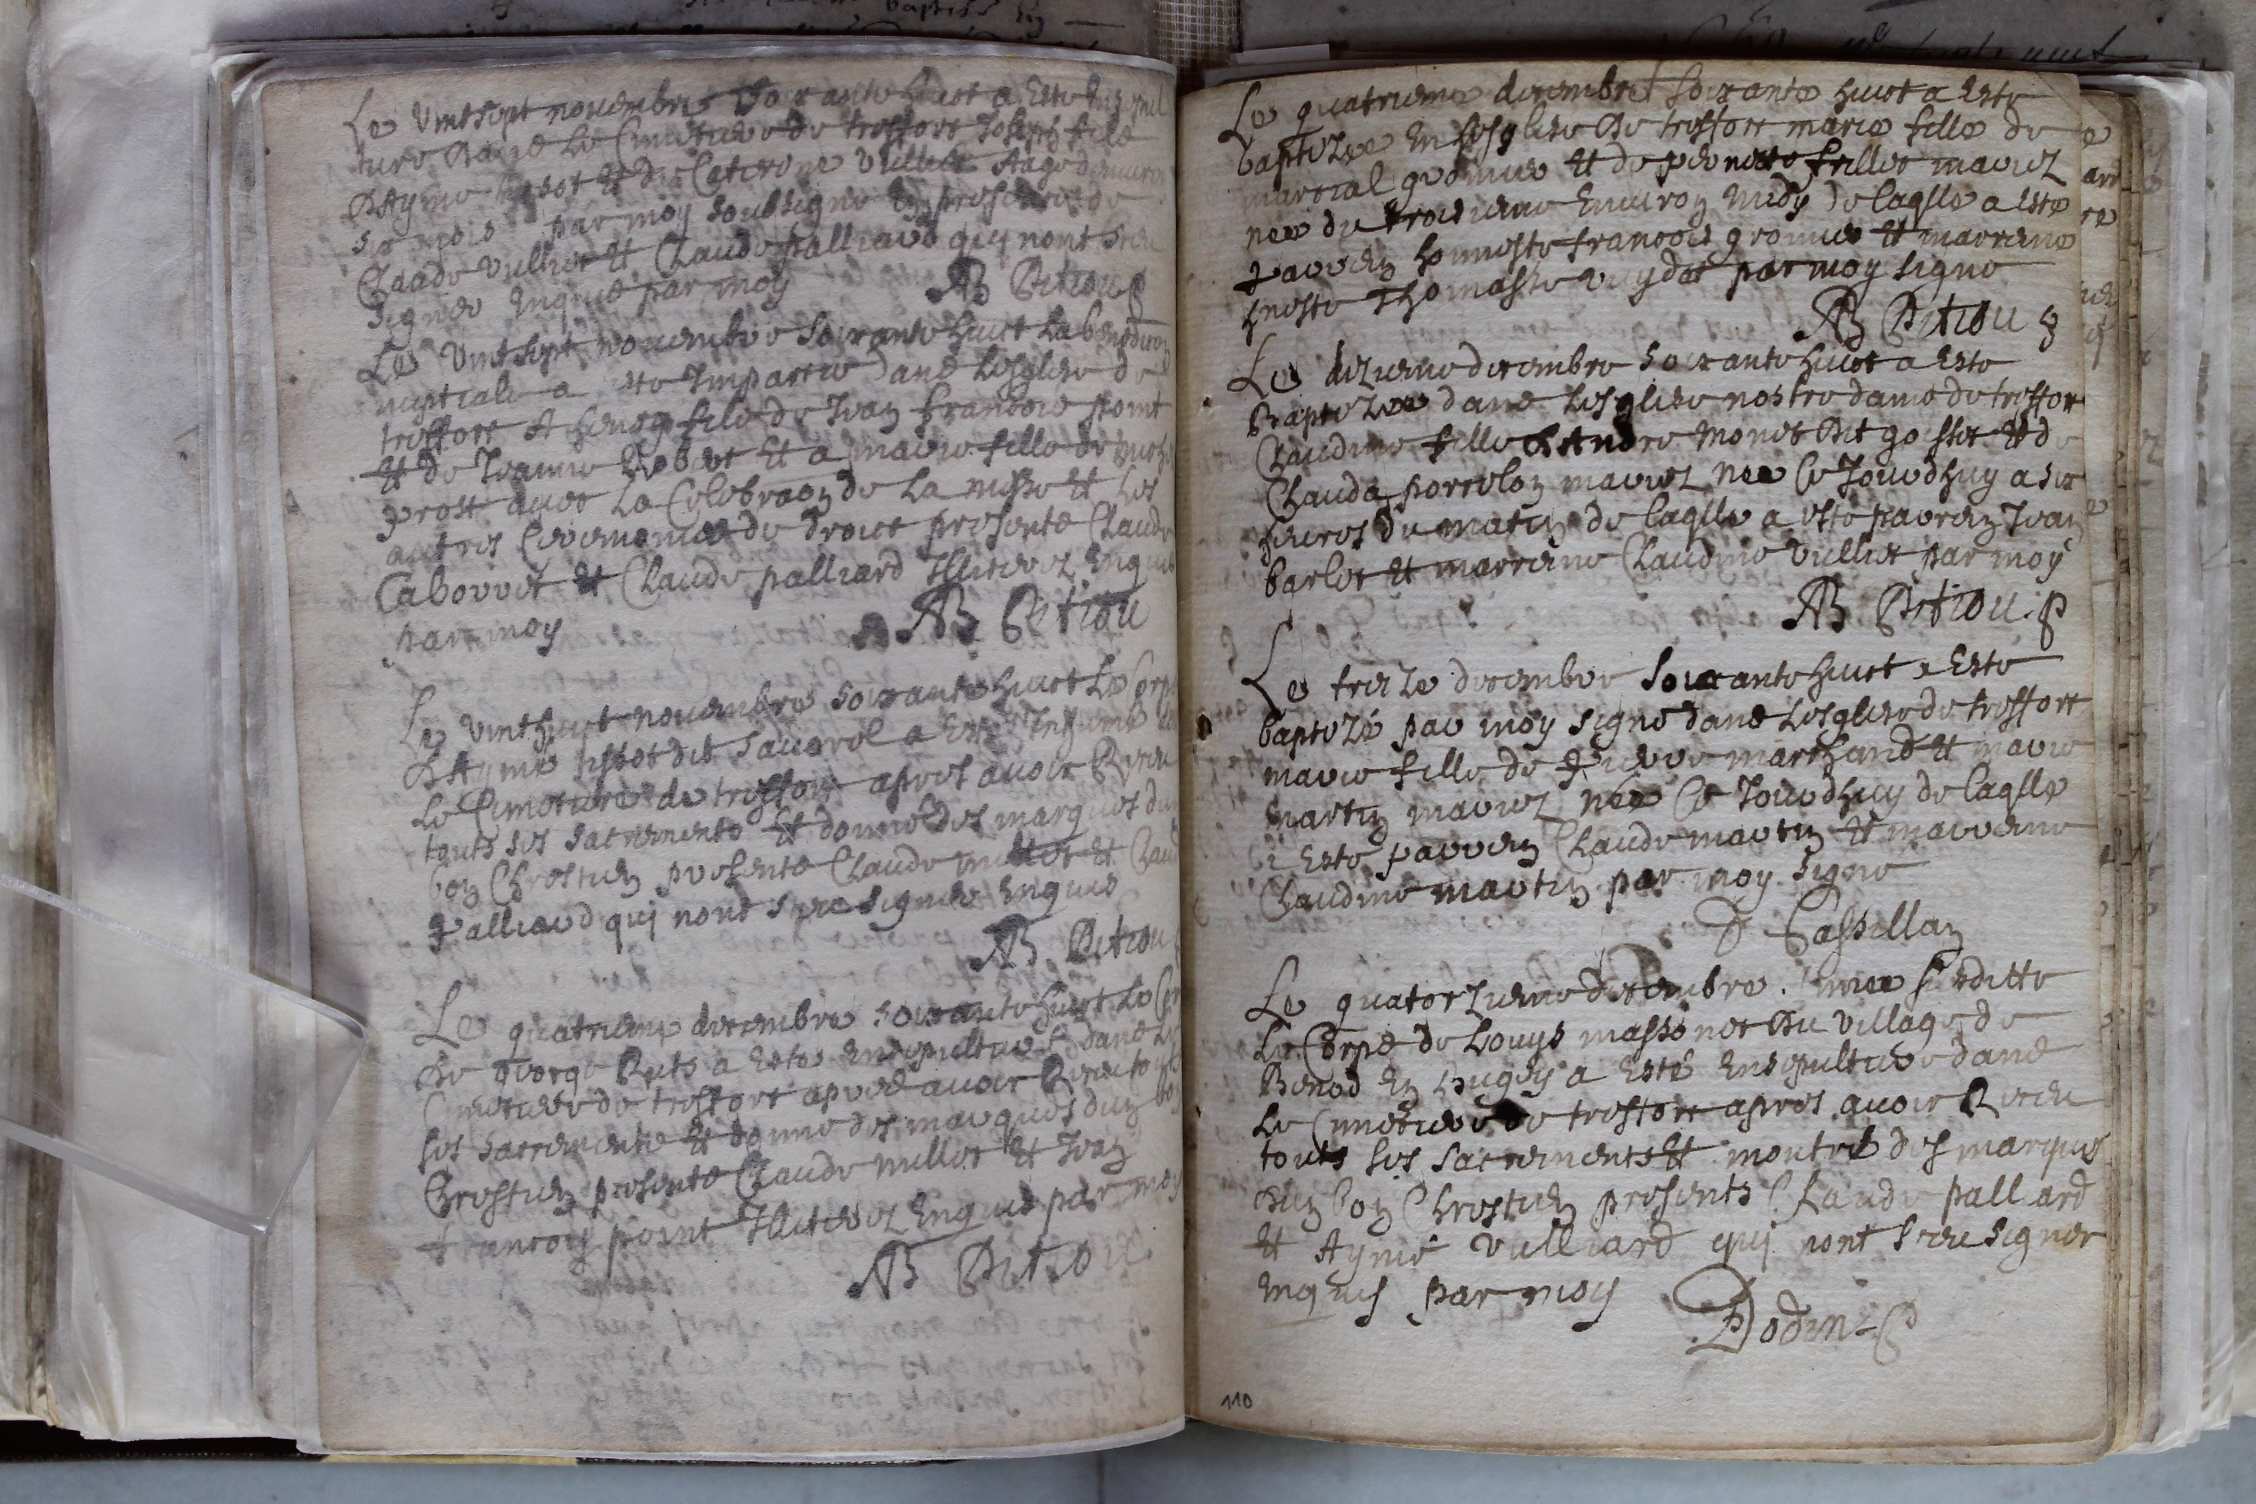 Le vintsept novembre soixante huict a este ensepul
ture dans le Cimetiere de treffort Joseph fils
D'Ayme tissot et de Caterine vulliet aage denviron
six mois par moy soubsigne en presence de
Claude vulliet et Claude palliard quj nont sceu
signer enquis par moy
AB Petiou
Le vintsept novembre soixante huict la benediction
nuptiale a este Jmpartie dans lesglise de
treffort A henry fils de Jean francois point
et de Jeanne Robet et a marie fille de
prost avec la Celebraon de la messe et les
autres Ceremonies de droict presents Claude
Cabovret et Claude palliard Illiterez enquis
par moy
AB Petiou
Le vinthuict novembre soixante huict Le Corps
D'Aymé tissot dit Savarol a este Inhumé
Le Cimetiere de treffort apres avoir Receu
touts ses sacrements et donné des marques dun
bon Chrestien presents Claude millet et Claude
Palliard quj nont sceu signer enquis
AB Petiou
Le quatrieme decembre soixante huict Le Corps
de george Ruts a este ensepulture dans le
Cimetiere de treffort apres avoir Receu touts
ses sacrements et donne des marques dun bon
Chrestien presents Claude millet et Jean
francois point Illiterez enquis par moy
AB Petiou
Le quatrieme decembre soixante huict a este
baptizee en lesglise de treffort marie fille de
martial gromier et de pernette fillet mariez
nee du troisieme environ midy de laqlle a este
Parrein honneste francois gromier et marreine
hneste Thomasse vuydat par moy signe
AB Petiou
Le dizieme decembre soixante huict a este
Baptizee dans lesglise nostre dame de treffort
Claudine fille de Andre monet dit goisset et de
Clauda porcelon mariez nee Ce Jourdhuy a six
heures du matin de laqlle a este parrein Jean
barlet et marreine Claudine vulliet par moy
AB Petiou
Le treize decembre soixante huict a este
baptizé par moy signe dans lesglise de treffort
marie fille de Pierre marchand et marie
martin mariez née Ce Jourdhuy de laqlle
a este parrein Claude martin et marreine
Claudine martin par moy signe
Cassillan
Le quatorzieme decembre annee susditte
Le Corps de Louys massonet du village de
Benod en bugey a esté ensepulture dans
Le Cimetiere de treffort apres avoir Receu
touts ses sacrements et montré des marques
dun bon Chrestien presents Claude palliard
et Aymé vulliard quj nont sceu signer
enquis par moy
Bodin
110